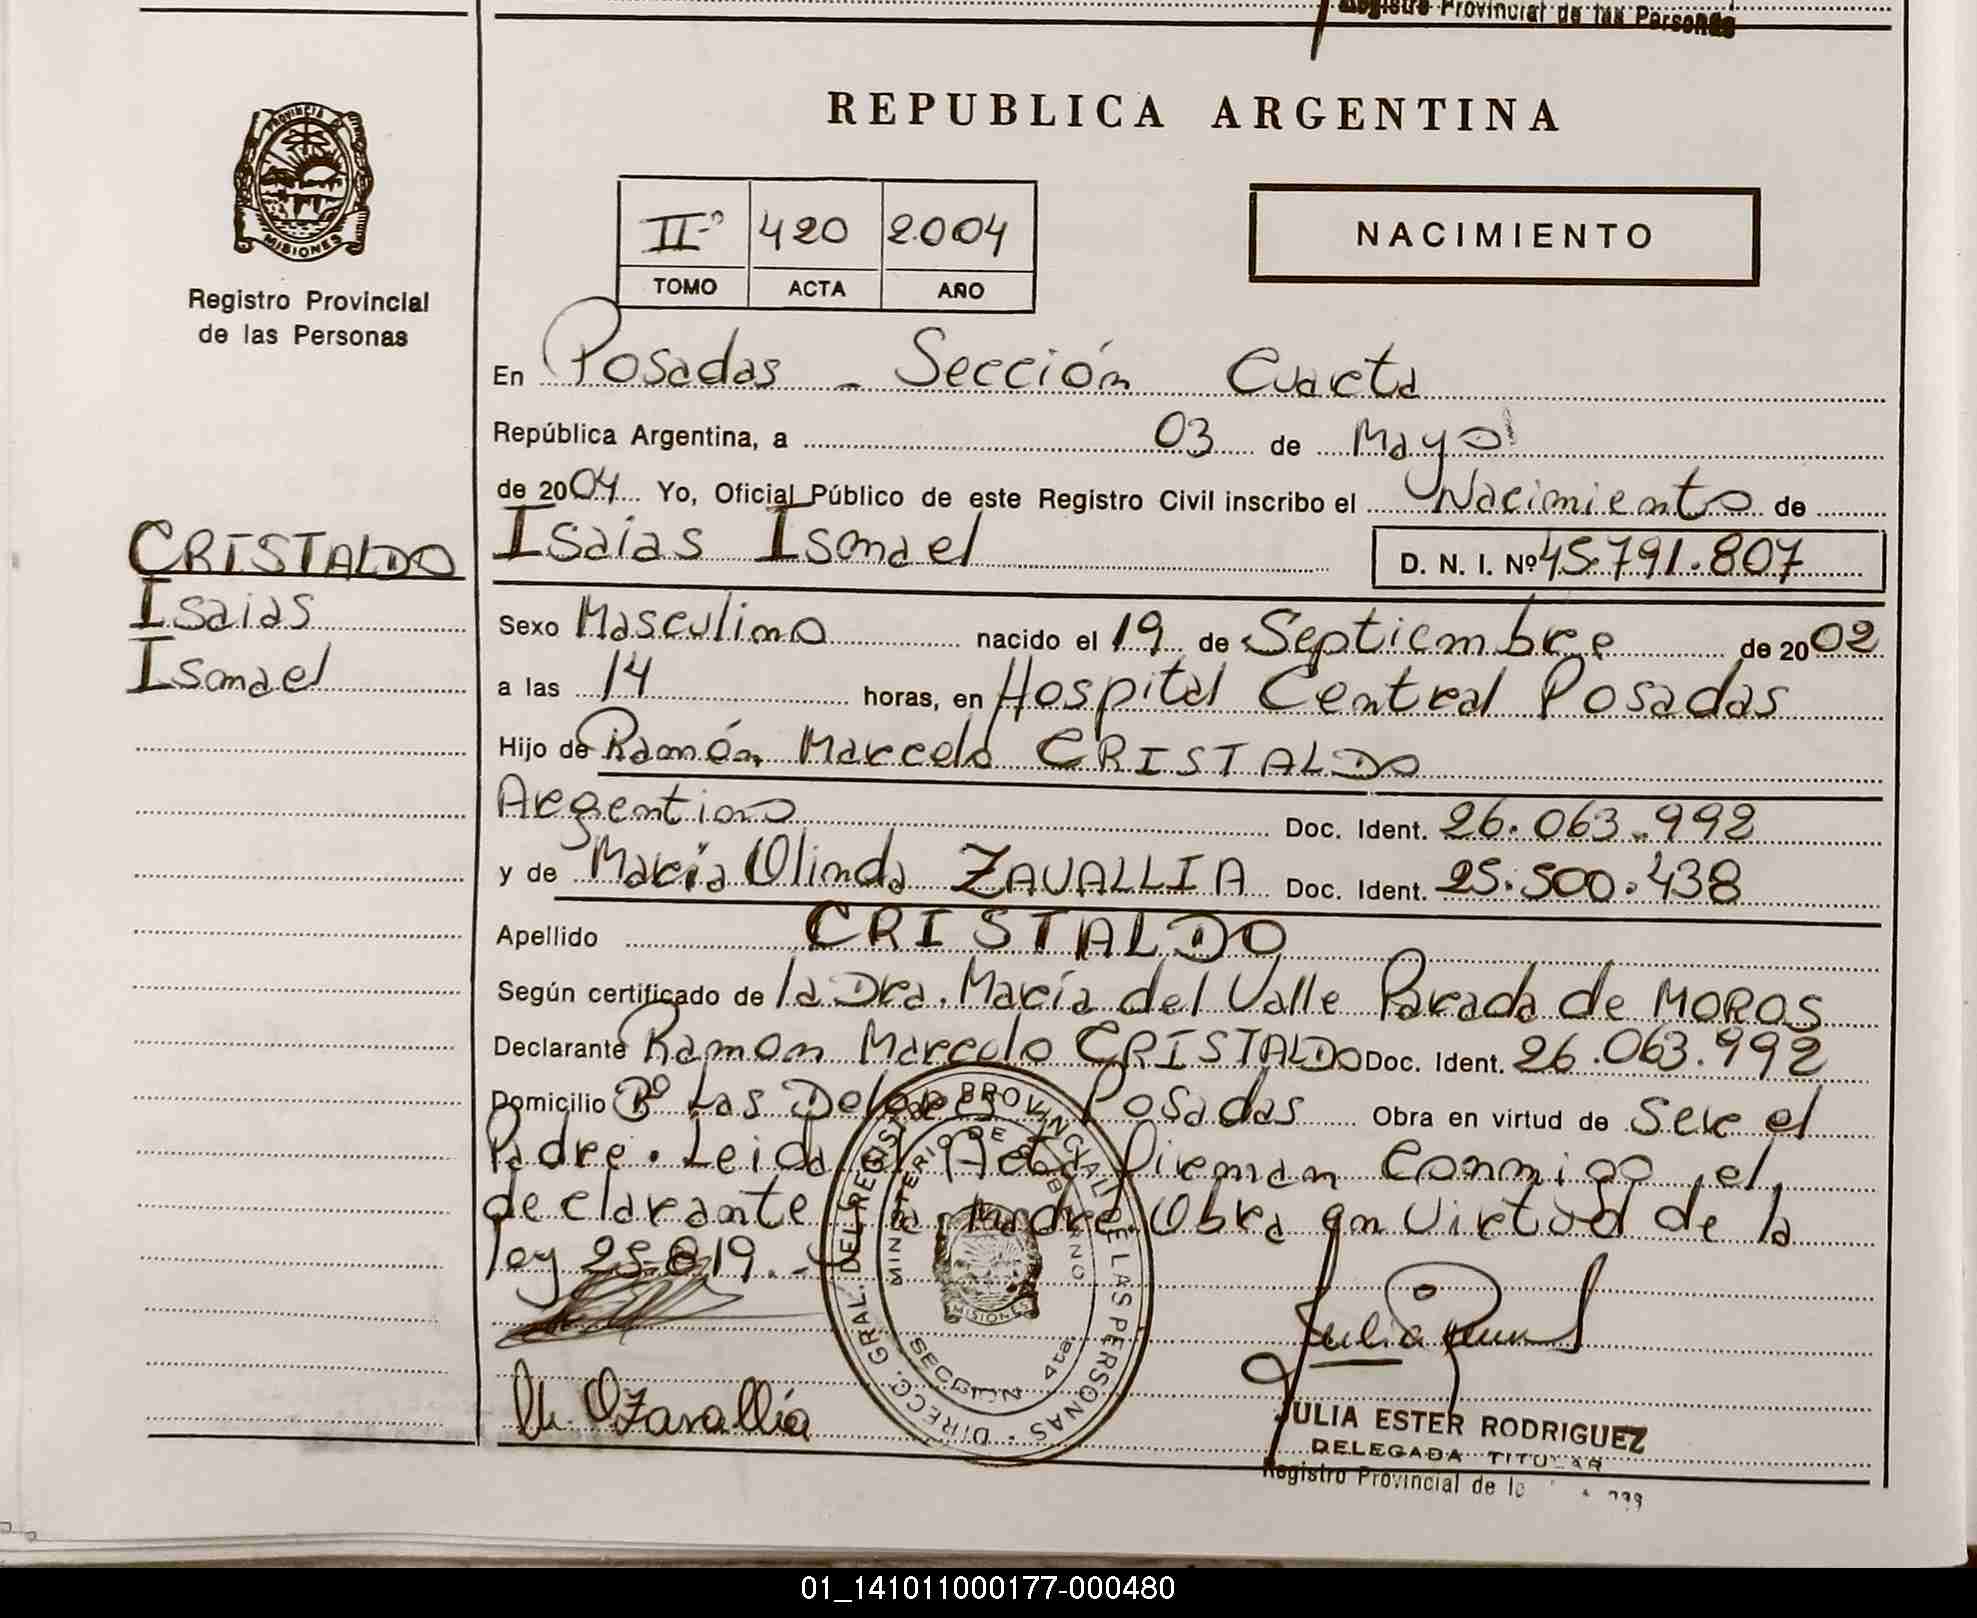 Registro Provincial de las Personas
PROVINCIA DE
MISIONES
Registro Provincial
de las Personas
REPUBLICA ARGENTINA
IIº 420 2004
TOMO ACTA AÑO
NACIMIENTO
En Posadas - Sección Cuarta
República Argentina, a 03 de Mayo
de 2004 Yo, Oficial Público de este Registro Civil inscribo el Nacimiento de
CRISTALDO
Isaias
Ismael
Isaias Ismael D. N. I. Nº 45.791.807
Sexo Masculino nacido el 19 de Septiembre de 2002
a las 14 horas, en Hospital Central Posadas
Hijo de Ramón Marcelo CRISTALDO
Argentino Doc. Ident. 26.063.992
y de María Olinda ZAVALLIA Doc. Ident. 25.500.438
Apellido CRISTALDO
Según certificado de la Dra. María del Valle Parada de MOROS
Declarante Ramon Marcelo CRISTALDO Doc. Ident. 26.063.992
Domicilio Bº Las Posadas Obra en virtud de Ser el
Padre. Leida el Acta Firman Conmigo el
declarante la Madre. Obra en Virtud de la
ley 25.819.-
DIRECC. GRAL. DEL REGISTRO PROVINCIAL DE LAS PERSONAS
MINISTERIO DE GOBIERNO
MISIONES
SECCIÓN 4ta
M. O Zavallia
JULIA ESTER RODRIGUEZ
DELEGADA TITULAR
Registro Provincial de
01_141011000177-000480